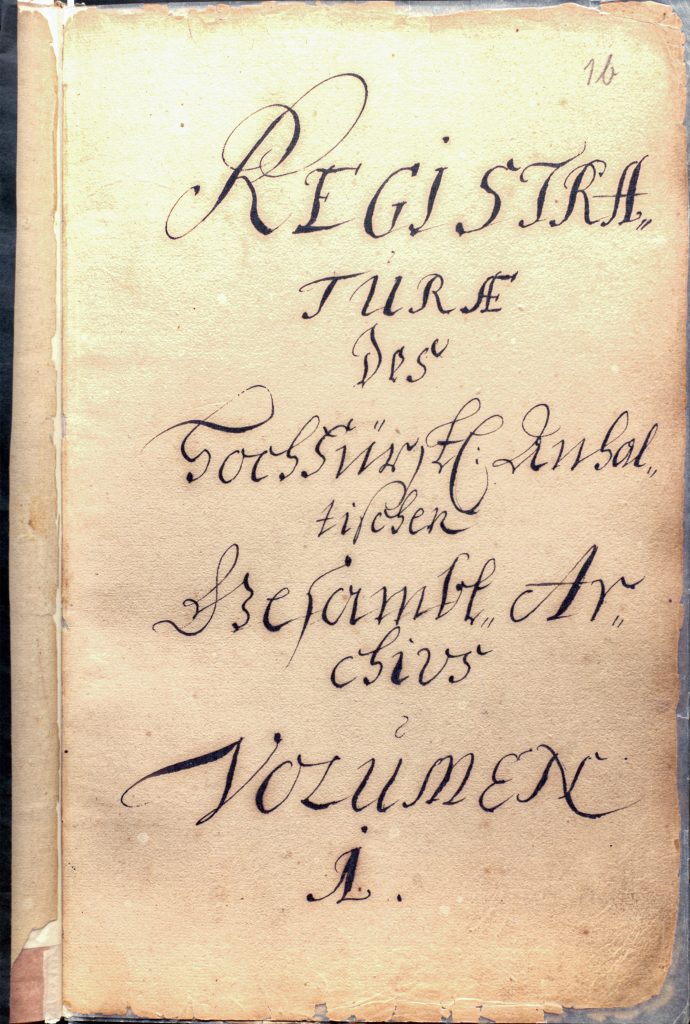 16
REGISTRA„
TURÆ
des
Hochfürstl: Anhal„
tischen
Gesambt„ Ar„
chivs
VOLUMEN
1.